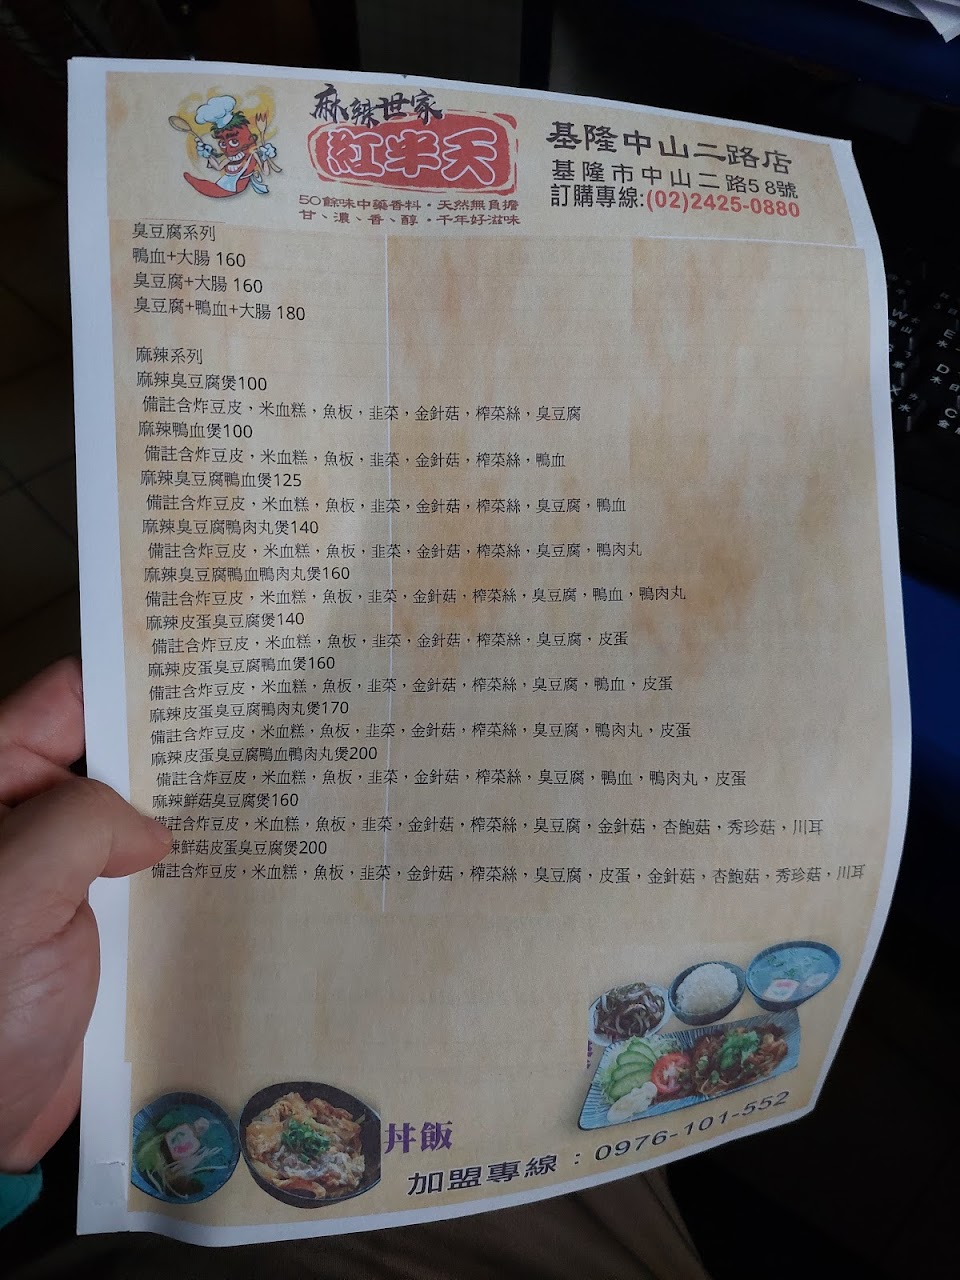 麻辣世家
紅半天
50餘味中藥香料・天然無負擔
甘、濃、香、醇・千年好滋味
基隆中山二路店
基隆市中山二路58號
訂購專線:(02)2425-0880
臭豆腐系列
鴨血+大腸 160
臭豆腐+大腸 160
臭豆腐+鴨血+大腸 180
麻辣系列
麻辣臭豆腐煲100
備註含炸豆皮，米血糕，魚板，韭菜，金針菇，榨菜絲，臭豆腐
麻辣鴨血煲100
備註含炸豆皮，米血糕，魚板，韭菜，金針菇，榨菜絲，鴨血
麻辣臭豆腐鴨血煲125
備註含炸豆皮，米血糕，魚板，韭菜，金針菇，榨菜絲，臭豆腐，鴨血
麻辣臭豆腐鴨肉丸煲140
備註含炸豆皮，米血糕，魚板，韭菜，金針菇，榨菜絲，臭豆腐，鴨肉丸
麻辣臭豆腐鴨血鴨肉丸煲160
備註含炸豆皮，米血糕，魚板，韭菜，金針菇，榨菜絲，臭豆腐，鴨血，鴨肉丸
麻辣皮蛋臭豆腐煲140
備註含炸豆皮，米血糕，魚板，韭菜，金針菇，榨菜絲，臭豆腐，皮蛋
麻辣皮蛋臭豆腐鴨血煲160
備註含炸豆皮，米血糕，魚板，韭菜，金針菇，榨菜絲，臭豆腐，鴨血，皮蛋
麻辣皮蛋臭豆腐鴨肉丸煲170
備註含炸豆皮，米血糕，魚板，韭菜，金針菇，榨菜絲，臭豆腐，鴨肉丸，皮蛋
麻辣皮蛋臭豆腐鴨血鴨肉丸煲200
備註含炸豆皮，米血糕，魚板，韭菜，金針菇，榨菜絲，臭豆腐，鴨血，鴨肉丸，皮蛋
麻辣鮮菇臭豆腐煲160
備註含炸豆皮，米血糕，魚板，韭菜，金針菇，榨菜絲，臭豆腐，金針菇，杏鮑菇，秀珍菇，川耳
辣鮮菇皮蛋臭豆腐煲200
備註含炸豆皮，米血糕，魚板，韭菜，金針菇，榨菜絲，臭豆腐，皮蛋，金針菇，杏鮑菇，秀珍菇，川耳
丼飯
加盟專線：0976-101-552